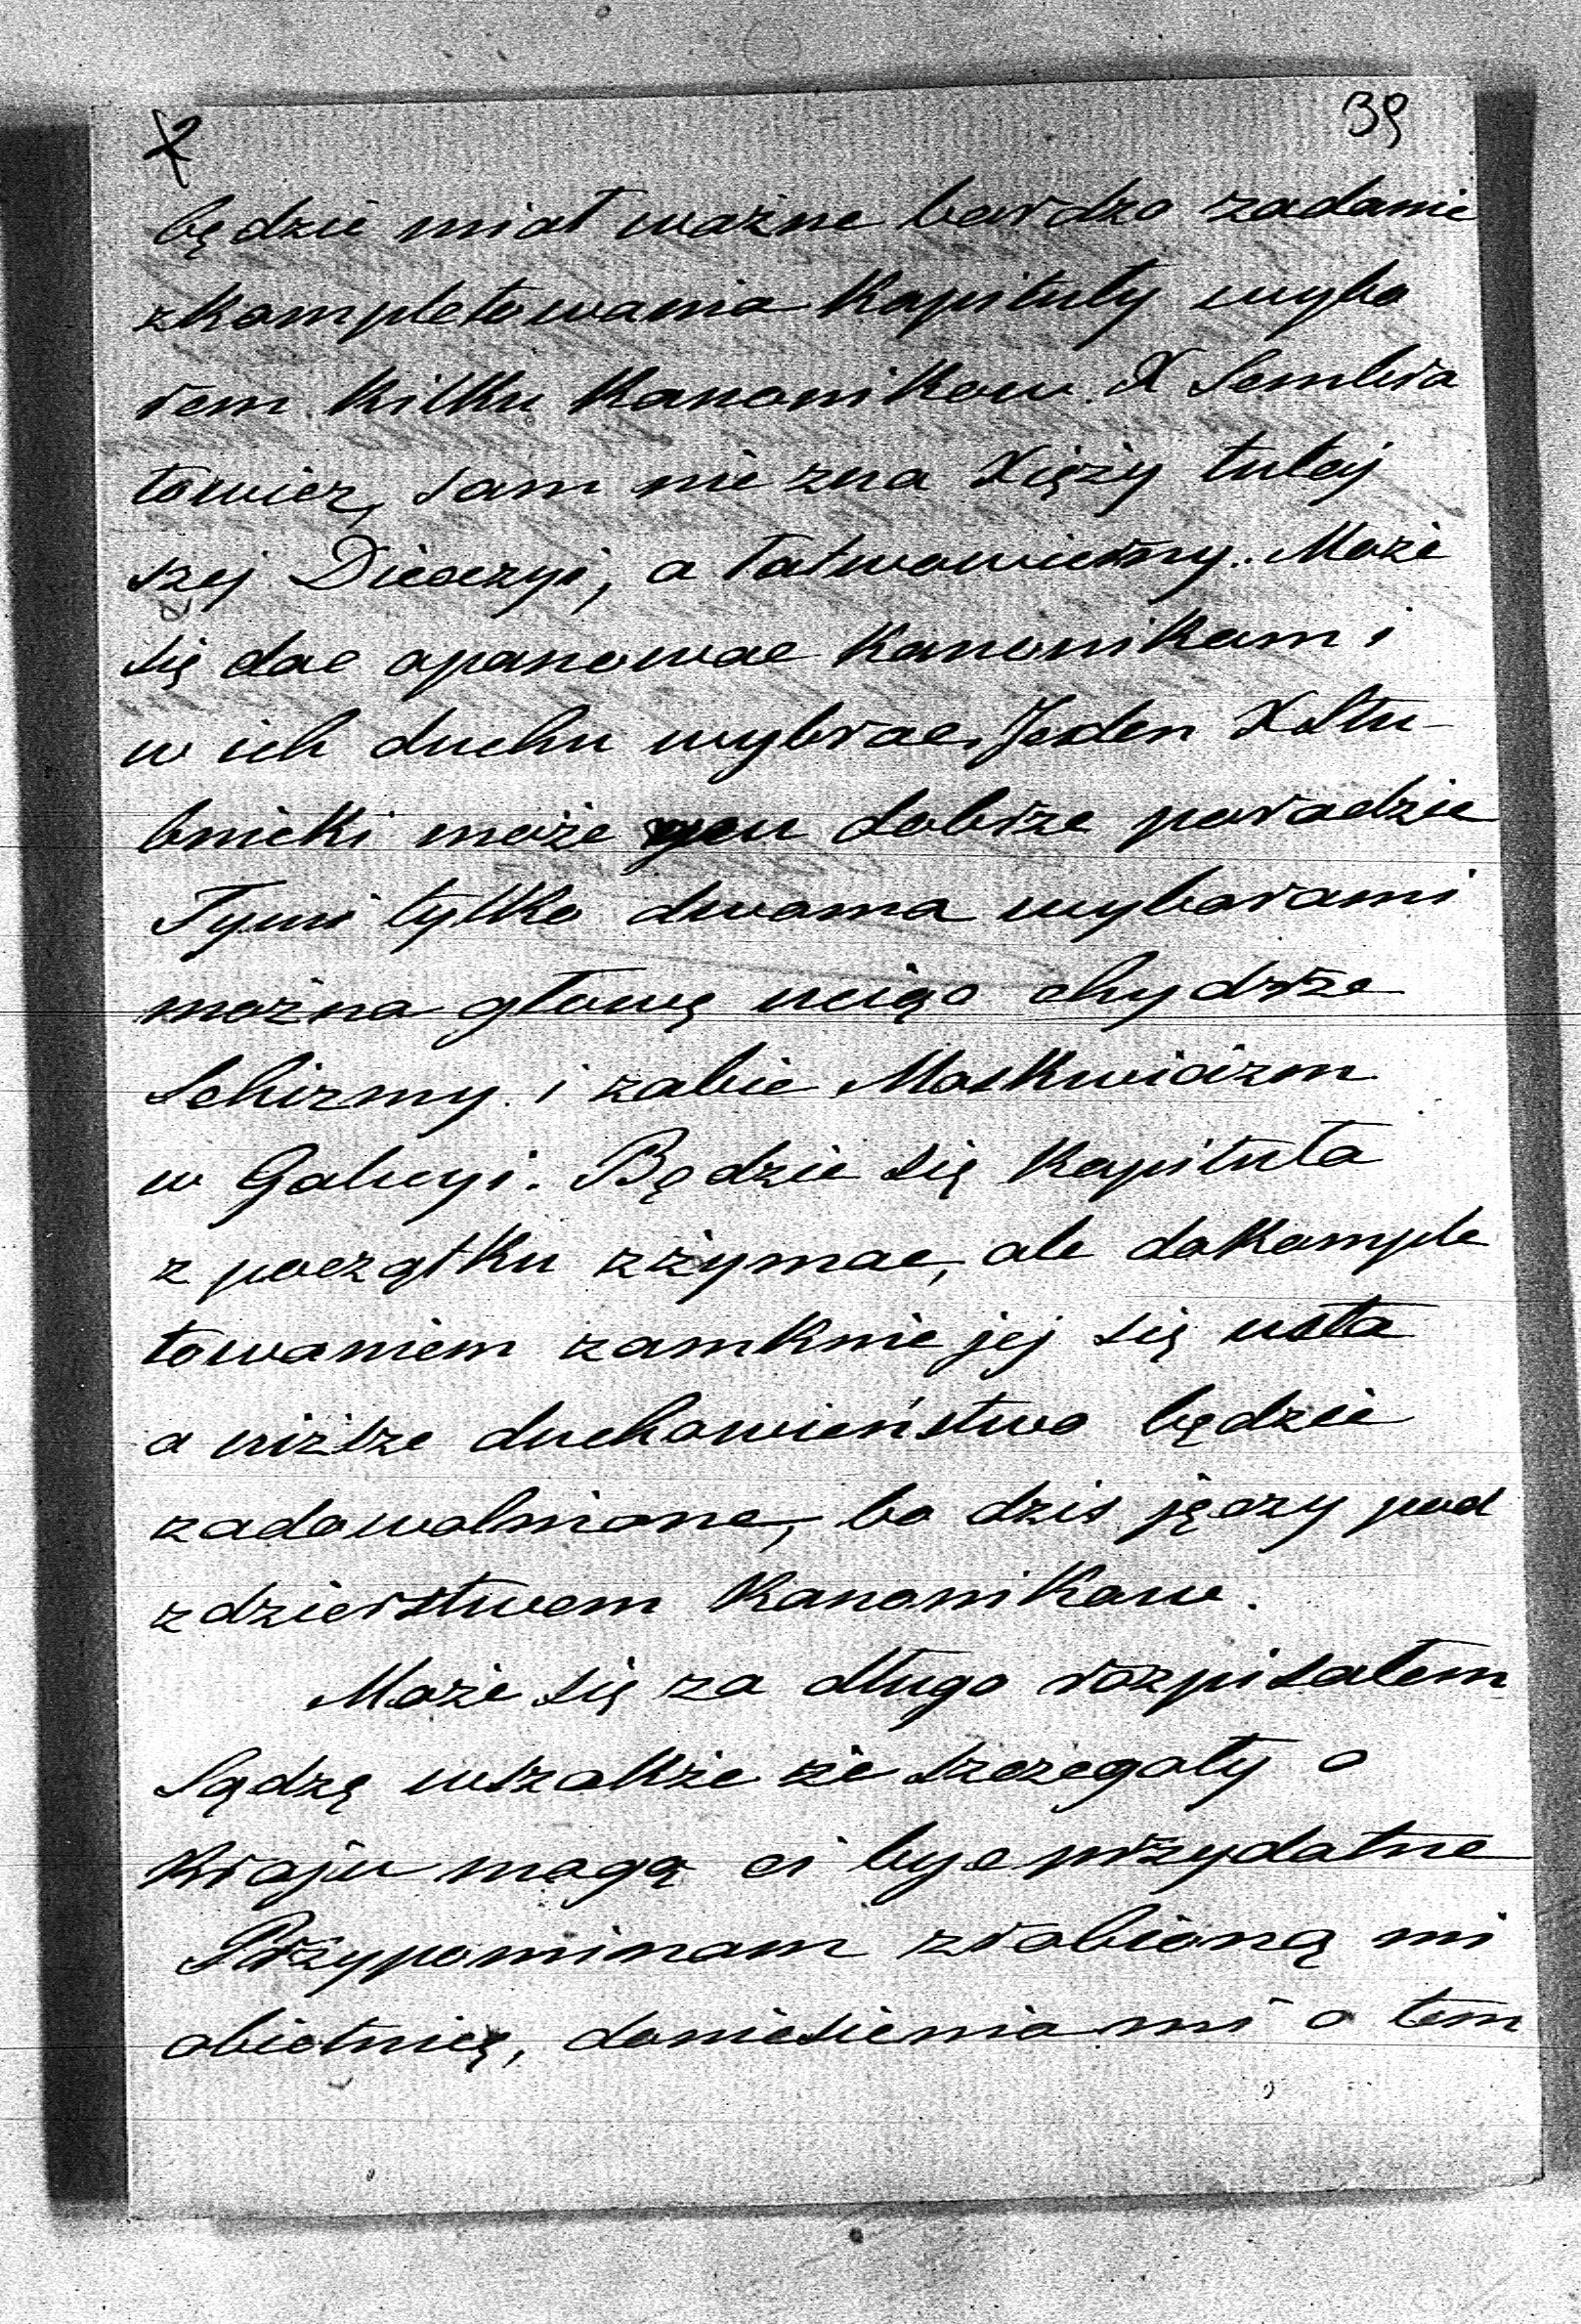 2 39
będzie miał ważne bardzo zadanie
zkompletowania Kapituły wybo
rem kilku Kanonikow. X Sembra
towicz, sam nie zna Xięży tutej
szej Diecezyi, a łatwowierny. Może
się dac opanowac Kanonikom i
w ich duchu wybrac. Jeden X Stu-
bnicki może dobrze poradzic
Tymi tylko dwoma wyborami
można głowę uciąc chydrze
Schizmy i zabic Moskwicizm
w Galicyi. Będzie się Kapituła
z początku zżymac, ale dokomple
towaniem zamknie jej się usta
a niższe duchowieństwo będzie
zadowolnione, bo dzis jęczy pod
zdzierstwem Kanonikow.
Może się za długo rozpisałem
Sądzę wszakże że szczegoły o
Kraju mogą ci byc przydatne
Przypominam zrobioną mi
obietnicę, doniesienia mi o tem